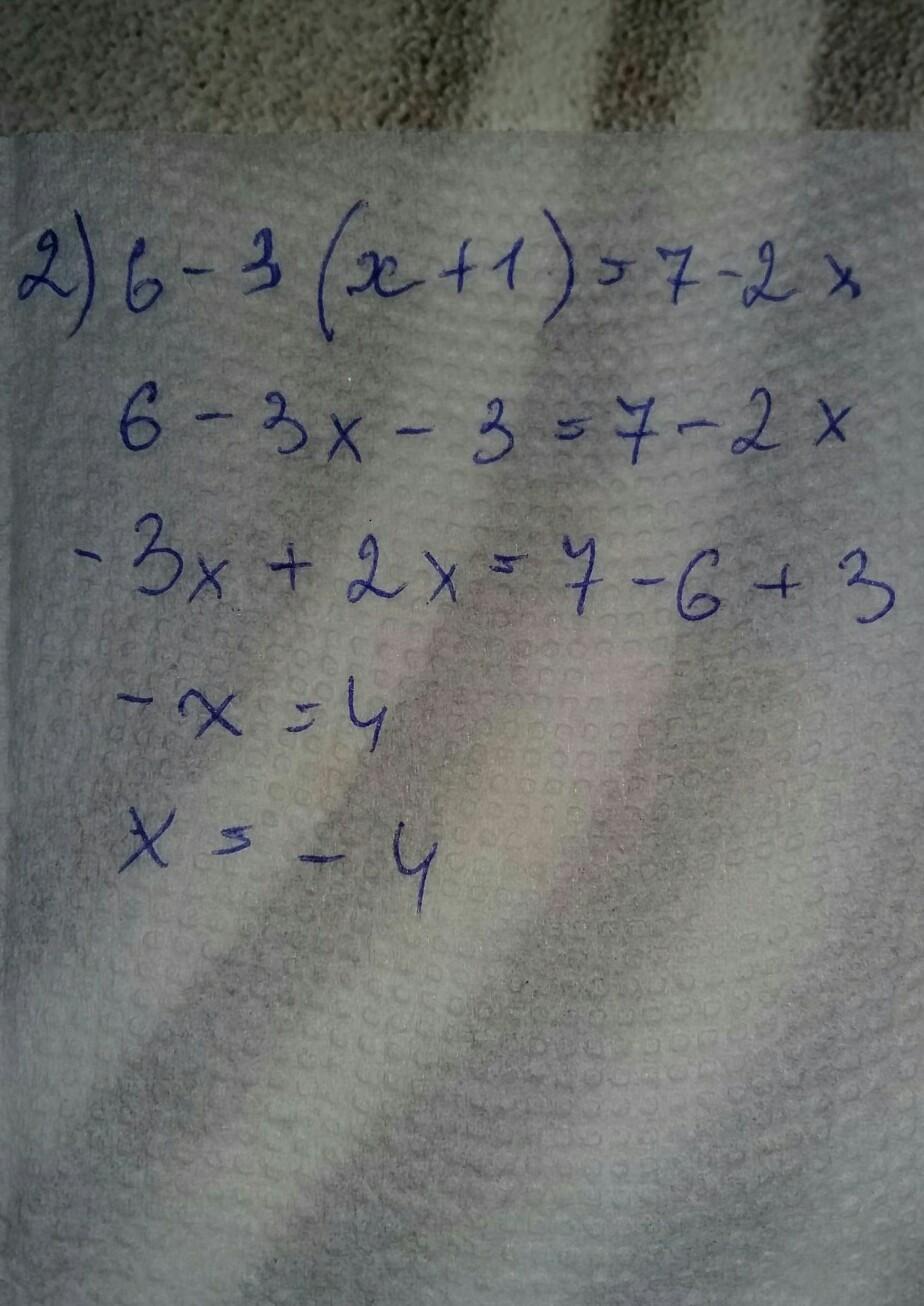 2) 6 - 3 (x + 1) = 7 - 2x
6 - 3x - 3 = 7 - 2x
- 3x + 2x = 7 - 6 + 3
- x = 4
x = - 4